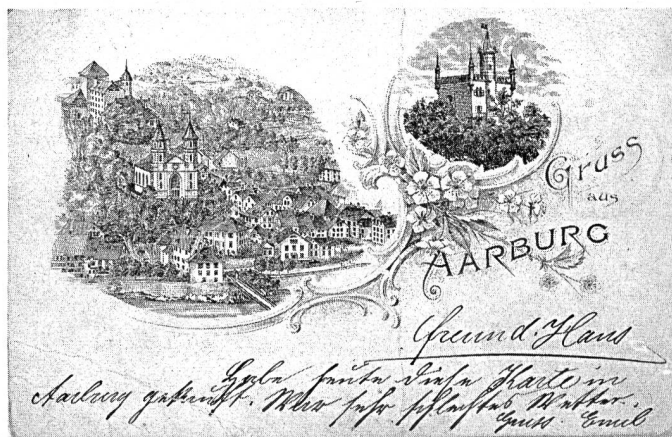 Gruss
aus
AARBURG
Freund. Hans
Habe heute diese Karte in
Aarburg gekauft. War sehr schlechtes Wetter.
Gruss. Emil